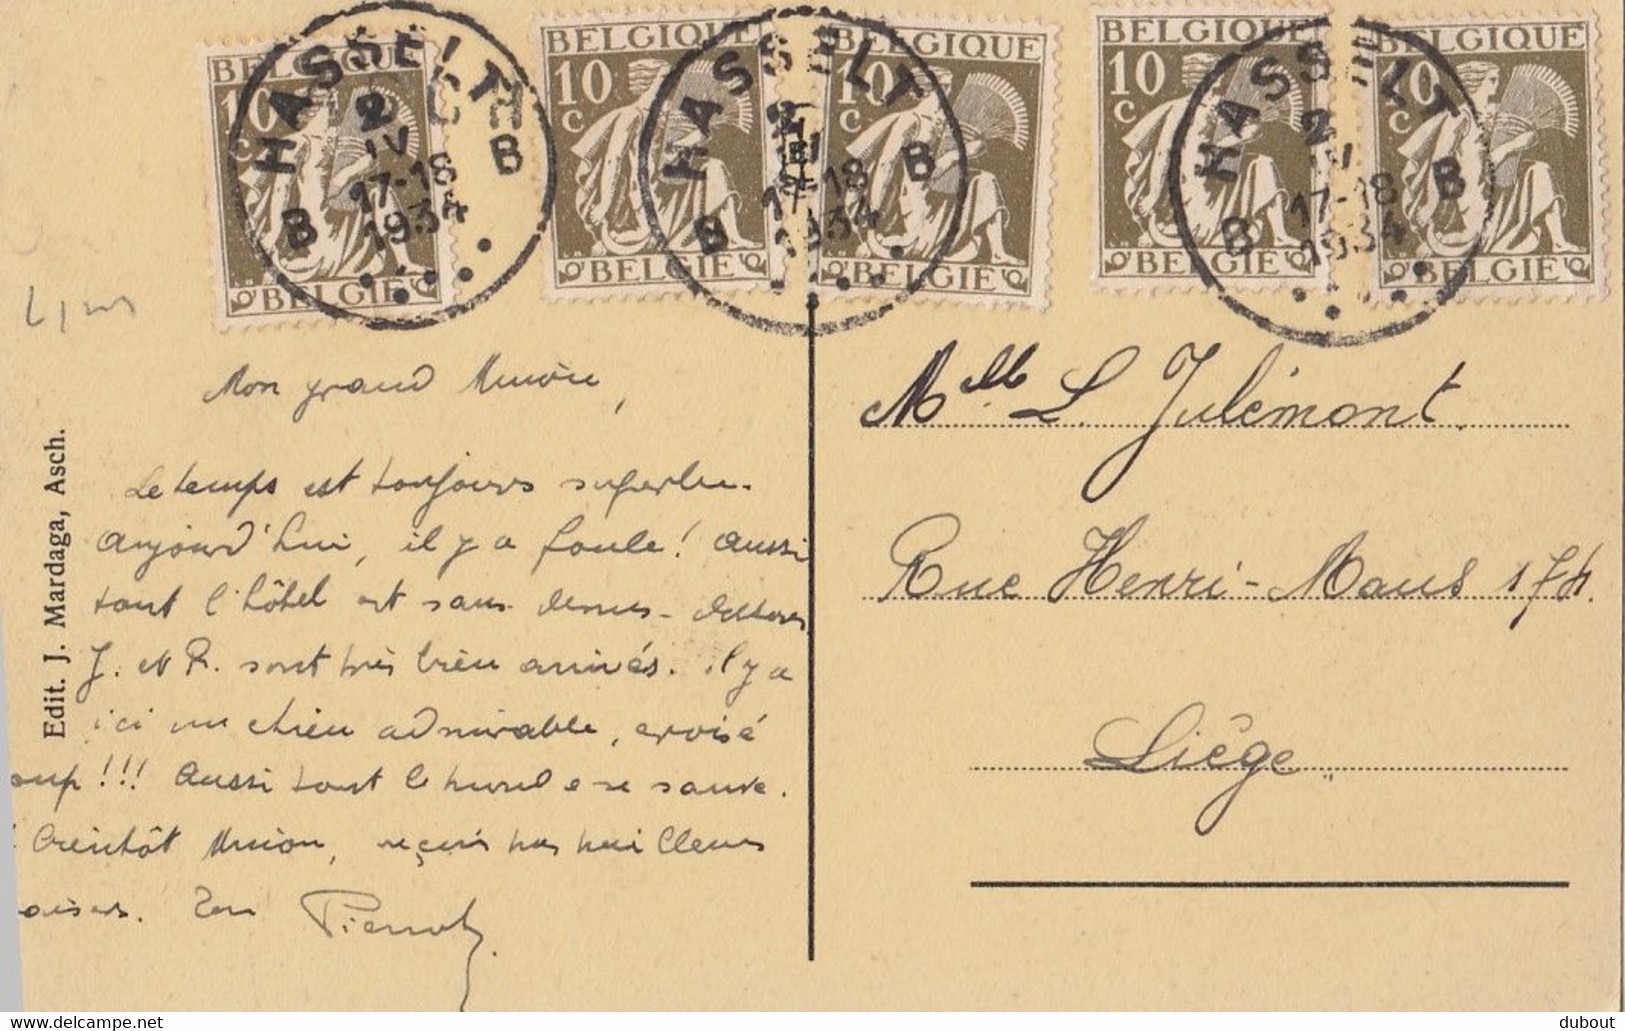 BELGIQUE
10
C
BELGIE
BELGIQUE
10
C
BELGIE
BELGIQUE
10
C
BELGIE
BELGIQUE
10
C
BELGIE
BELGIQUE
10
C
BELGIE
HASSELT
B B
2
IV
17-18
1934
HASSELT
B B
17-18
1934
HASSELT
B B
2
IV
17-18
1934
Edit. J. Mardaga, Asch.
Mon grand
Le temps est toujours superbe.
Aujourd'hui, il y a foule! Aussi
tout l'hôtel est sans dessus-dessous
J. et R. sont très bien arrivés. il y a
ici un chien admirable, croisé
oup!!! Aussi tout le monde se sauve.
bientôt, reçois mes meilleurs
aisers. Ton Pierrot
Melle L. Julémont.
Rue Henri-Maus 174.
Liège
dubout